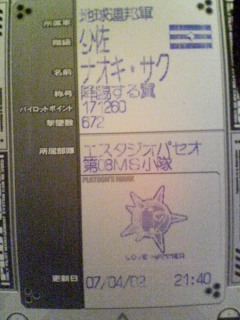 所属軍 地球連邦軍
階級 少佐
名前 ナオキ・サク
称号 陸渡する翼
パイロットポイント 171260
撃墜数 672
所属部隊 エスタジオパセオ
第08MS小隊
PLATOON'S MARK
LOVE HAMMER
更新日 07/04/02 21:40